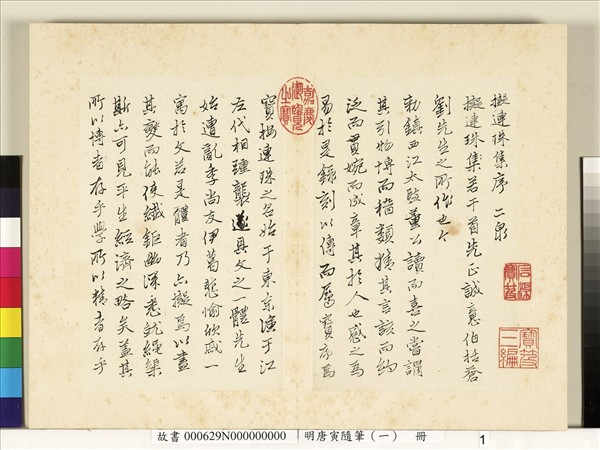 擬連珠集序 二泉
擬連珠集若干首先正誠意伯括蒼
劉先生之所作也今
勅鎮西江太監董公讀而喜之嘗謂
其引物博而積類摛其言該而約
泛而貫婉而成章其於人也感之為
易於是錄刻以傳而屬寶序焉
寶按連珠之名始于東京演于江
左代相踵襲遂具文之一體先生
始遭亂季尚友伊葛悲愉欣戚一
寓於文若是體者乃亦擬焉以盡
其變而能使纖鉅幽深悉就繩榘
斯亦可見平生經濟之略矣蓋其
所以博者存乎學所以精者存乎
嘉慶御覽之寶
石渠寶笈
寶笈三編
故書 000629N000000000 明唐寅隨筆（一） 冊 1